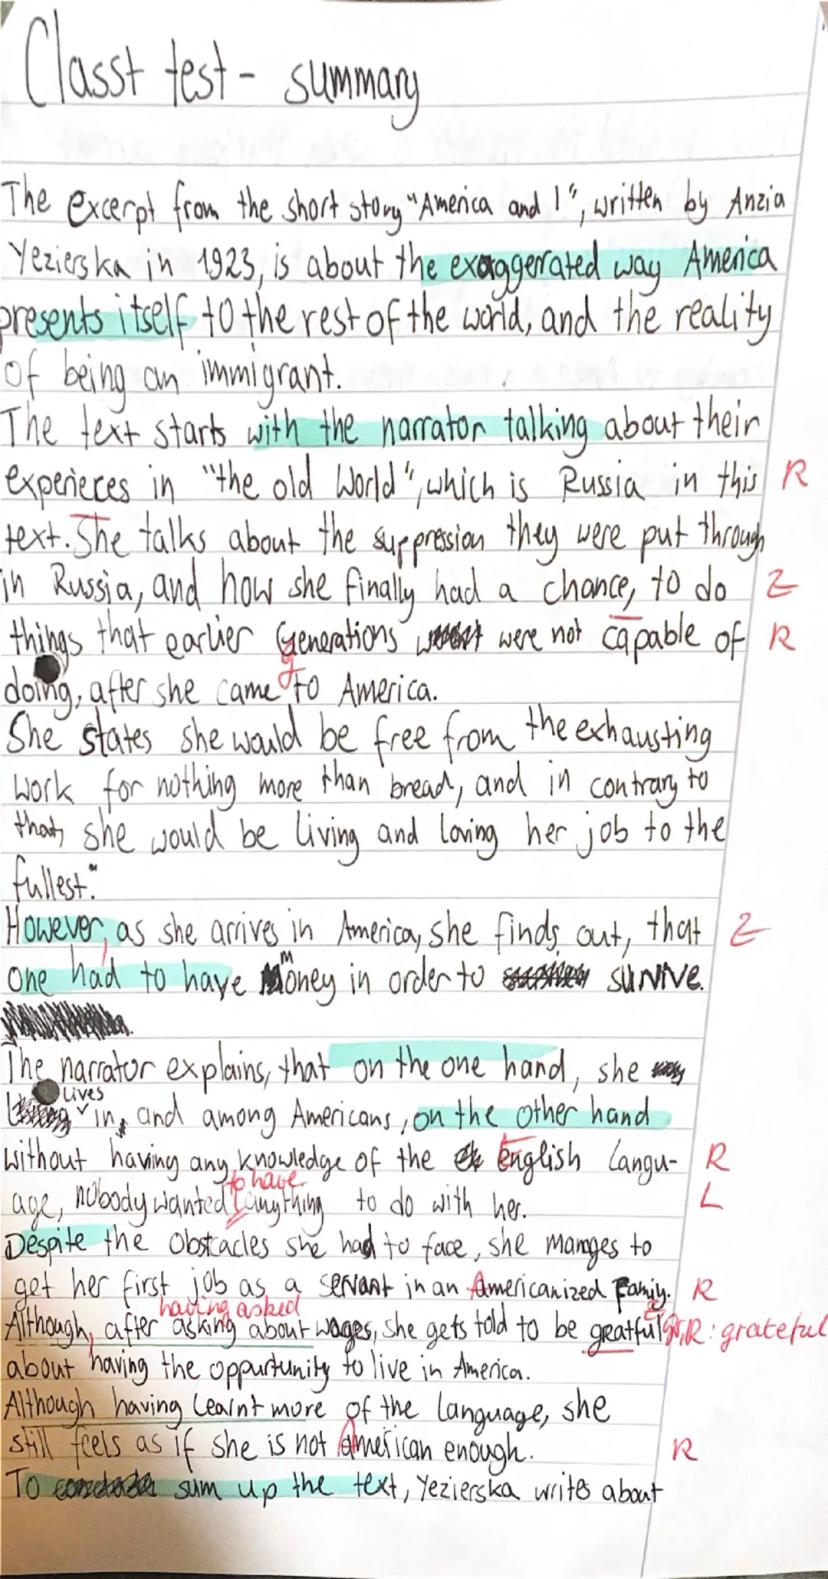 Classt test - summary
The excerpt from the short story "America and I", written by Anzia
Yezierska in 1923, is about the exaggerated way America
presents itself to the rest of the world, and the reality
of being an immigrant.
The text starts with the narrator talking about their
experieces in "the old World", which is Russia in this R
text. She talks about the suppression they were put through
in Russia, and how she finally had a chance, to do Z
things that earlier Generations were not capable of R
g
doing, after she came to America.
She states she would be free from the exhausting
work for nothing more than bread, and in contrary to
that, she would be living and loving her job to the
fullest."
However, as she arrives in America, she finds out, that Z
one had to have money in order to survive.
The narrator explains, that on the one hand, she
lives
in, and among Americans, on the other hand
without having any knowledge of the English Langu- R
to have
age, nobody wanted anything to do with her. L
Despite the Obstacles she had to face, she manges to
get her first job as a servant in an Americanized Family. R
having asked
Although, after asking about wages, she gets told to be greatful R: grateful
about having the oppurtunity to live in America.
Although having learnt more of the language, she
still feels as if she is not American enough. R
To sum up the text, Yezierska writes about